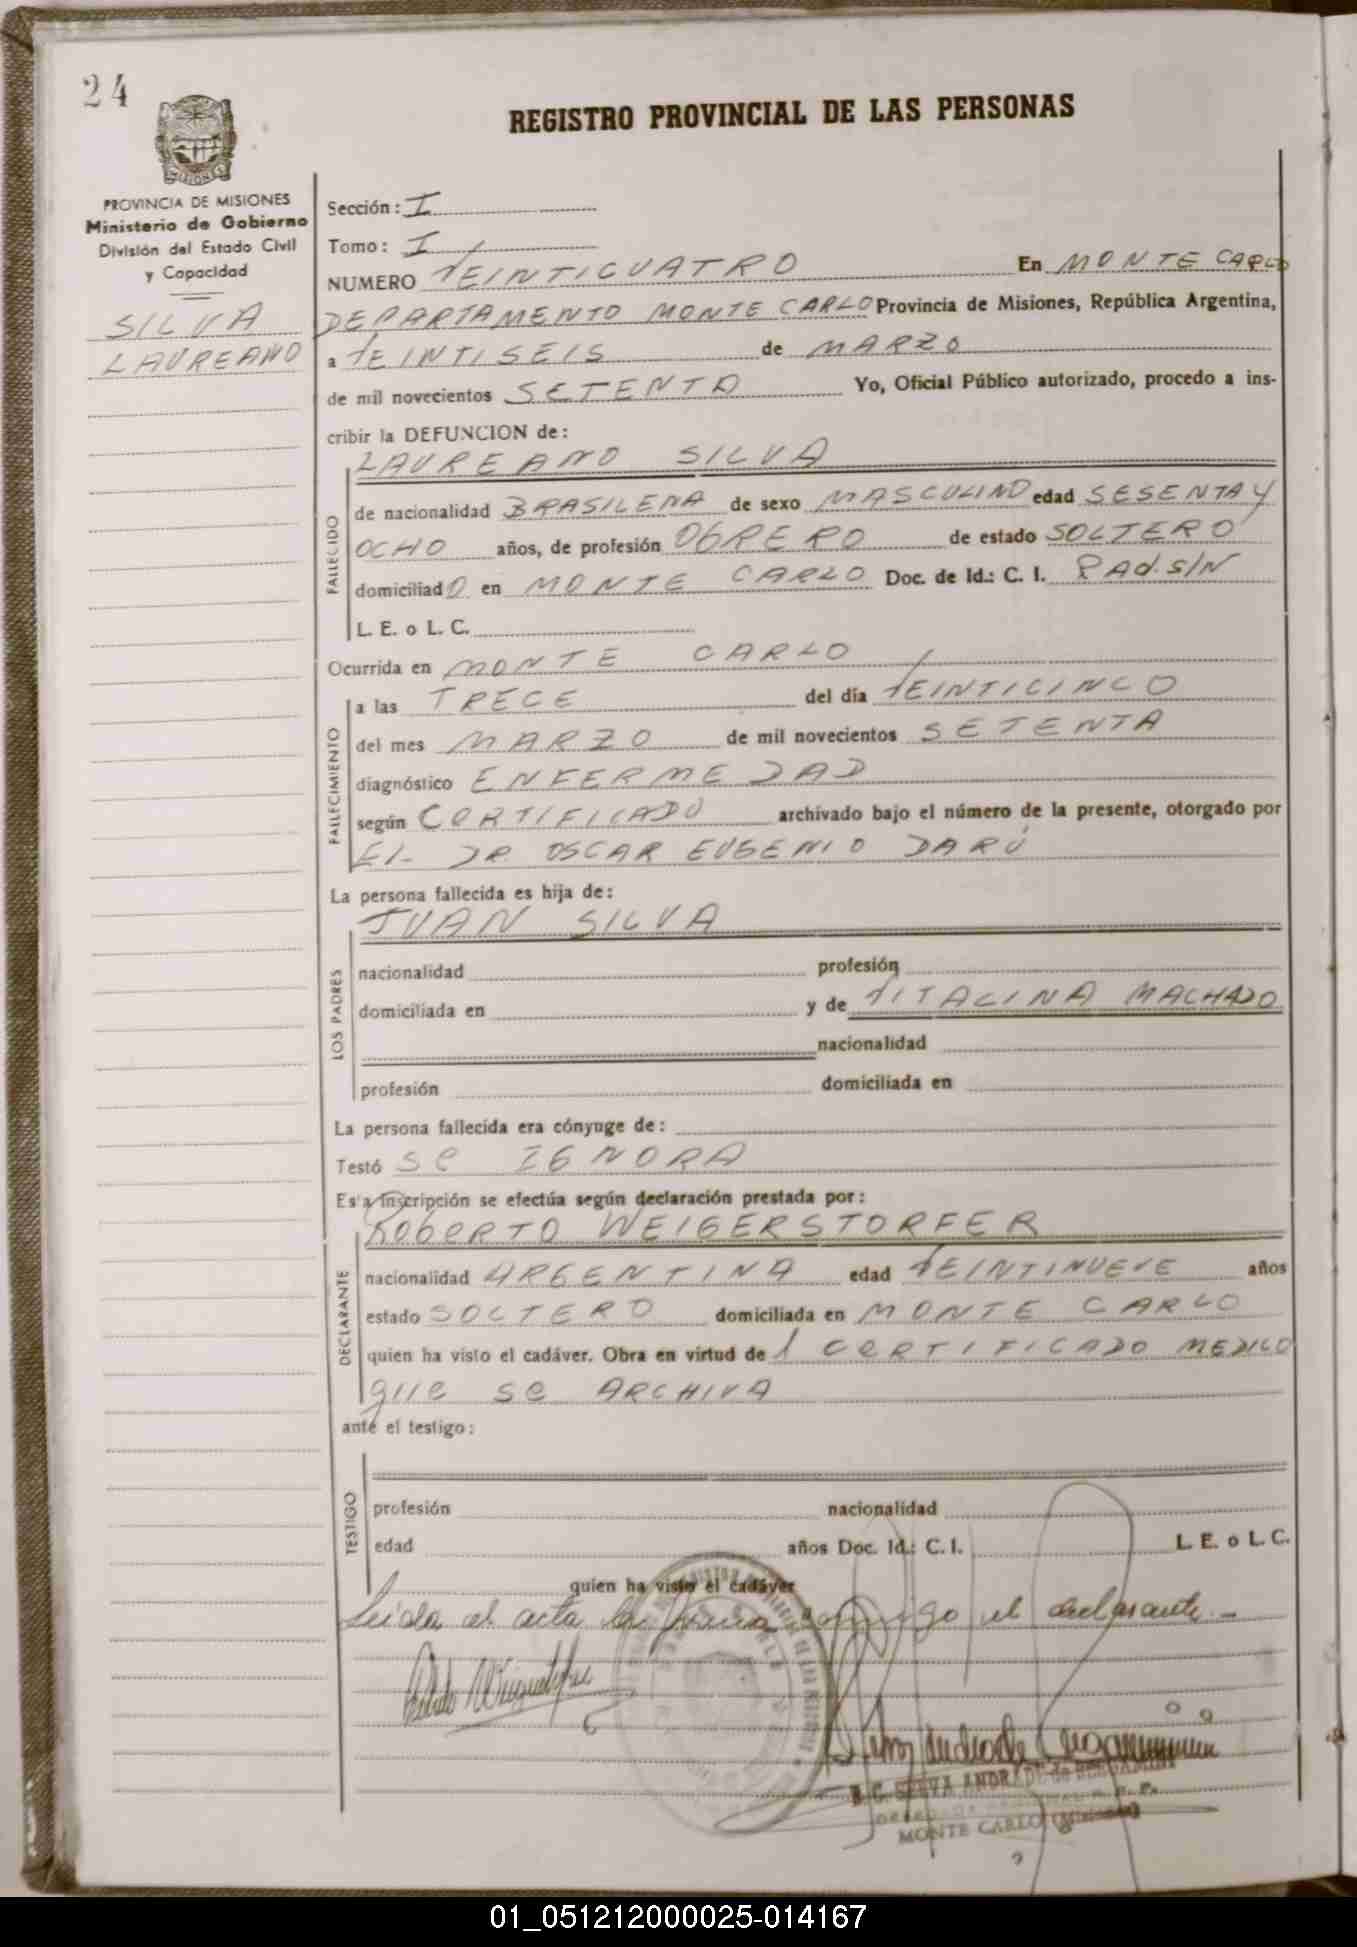 24
REGISTRO PROVINCIAL DE LAS PERSONAS
MISIONES
PROVINCIA DE MISIONES
Ministerio de Gobierno
División del Estado Civil
y Capacidad
SILVA
LAUREANO
Sección: I
Tomo: I
NUMERO VEINTICUATRO En MONTE CARLO
DEPARTAMENTO MONTE CARLO Provincia de Misiones, República Argentina,
a VEINTISEIS de MARZO
de mil novecientos SETENTA Yo, Oficial Público autorizado, procedo a ins-
cribir la DEFUNCION de:
LAUREANO SILVA
FALLECIDO
de nacionalidad BRASILENA de sexo MASCULINO edad SESENTA Y
OCHO años, de profesión OBRERO de estado SOLTERO
domiciliadO en MONTE CARLO Doc. de Id.: C. I. PAd. S/N
L. E. o L. C.
Ocurrida en MONTE CARLO
FALLECIMIENTO
a las TRECE del día VEINTICINCO
del mes MARZO de mil novecientos SETENTA
diagnóstico ENFERMEDAD
según CERTIFICADO archivado bajo el número de la presente, otorgado por
EL DR OSCAR EUGENIO DARÚ
La persona fallecida es hija de:
JUAN SILVA
LOS PADRES
nacionalidad profesión
domiciliada en y de VITALINA MACHADO
nacionalidad
profesión domiciliada en
La persona fallecida era cónyuge de:
Testó Se IGNORA
Esta inscripción se efectúa según declaración prestada por:
RObeRTO WEIGERSTORFER
DECLARANTE
nacionalidad ARGENTINA edad VEINTINUEVE años
estado SOLTERO domiciliada en MONTE CARLO
quien ha visto el cadáver. Obra en virtud de 1 CeRTIFICADO MEDICO
que se ARCHIVA
ante el testigo:
TESTIGO
profesión nacionalidad
edad años Doc. Id.: C. I. L. E. o L. C.
quien ha visto el cadáver
Leida el acta la firma conmigo el declarante.-
B. C. SELVA ANDRADE de BERGAMINI
MONTE CARLO (Misiones)
01_051212000025-014167